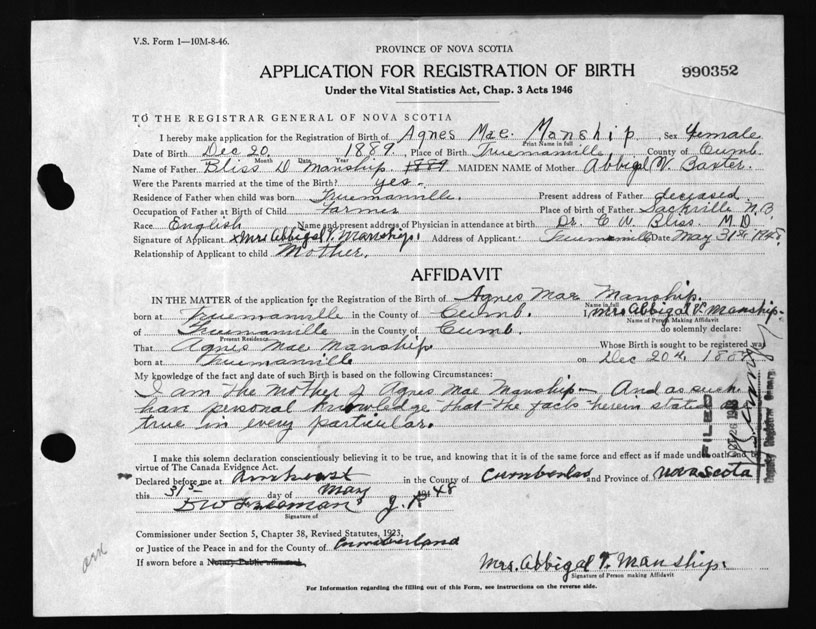 V.S. Form 1—10M-8-46.
PROVINCE OF NOVA SCOTIA
APPLICATION FOR REGISTRATION OF BIRTH
990352
Under the Vital Statistics Act, Chap. 3 Acts 1946
TO THE REGISTRAR GENERAL OF NOVA SCOTIA
I hereby make application for the Registration of Birth of Agnes Mae. Manship, Sex Female
Print Name in full
Date of Birth Dec 20. 1889, Place of Birth Truemanville County of Cumb.
Month Date Year
Name of Father Bliss D Manship. 1889 MAIDEN NAME of Mother Abbigal V. Baxter.
Were the Parents married at the time of the Birth? yes.
Residence of Father when child was born Truemanville. Present address of Father deceased
Occupation of Father at Birth of Child Farmer Place of birth of Father Sackville N.B.
Race English Name and present address of Physician in attendance at birth Dr. C. W. Bliss. M.D.
Signature of Applicant x Mrs Abbigal V. Manship. Address of Applicant Truemanville Date May 31st 1948.
Relationship of Applicant to child Mother.
AFFIDAVIT
IN THE MATTER of the application for the Registration of the Birth of Agnes Mae Manship.
Name in full
born at Truemanville in the County of Cumb. I, Mrs Abbigal V. Manship.
Name of Person Making Affidavit
of Truemanville in the County of Cumb. do solemnly declare:
Present Residence
That Agnes Mae Manship Whose Birth is sought to be registered was
born at Truemanville on Dec 20th
My knowledge of the fact and date of such Birth is based on the following Circumstances:
I am the mother of Agnes Mae Manship - And as such
have personal knowledge that the facts herein stated is
true in every particular.
I make this solemn declaration conscientiously believing it to be true, and knowing that it is of the same force and effect as if made under oath and by
virtue of The Canada Evidence Act.
Declared before me at Amherst in the County of Cumberland and Province of Nova Scotia
this 31st day of May 1948
D W Freeman J.P.
Signature of
Commissioner under Section 5, Chapter 38, Revised Statutes, 1923,
or Justice of the Peace in and for the County of Cumberland
If sworn before a Notary Public
Mrs. Abbigal V. Manship.
Signature of Person making Affidavit
For Information regarding the filling out of this Form, see instructions on the reverse side.
FILED